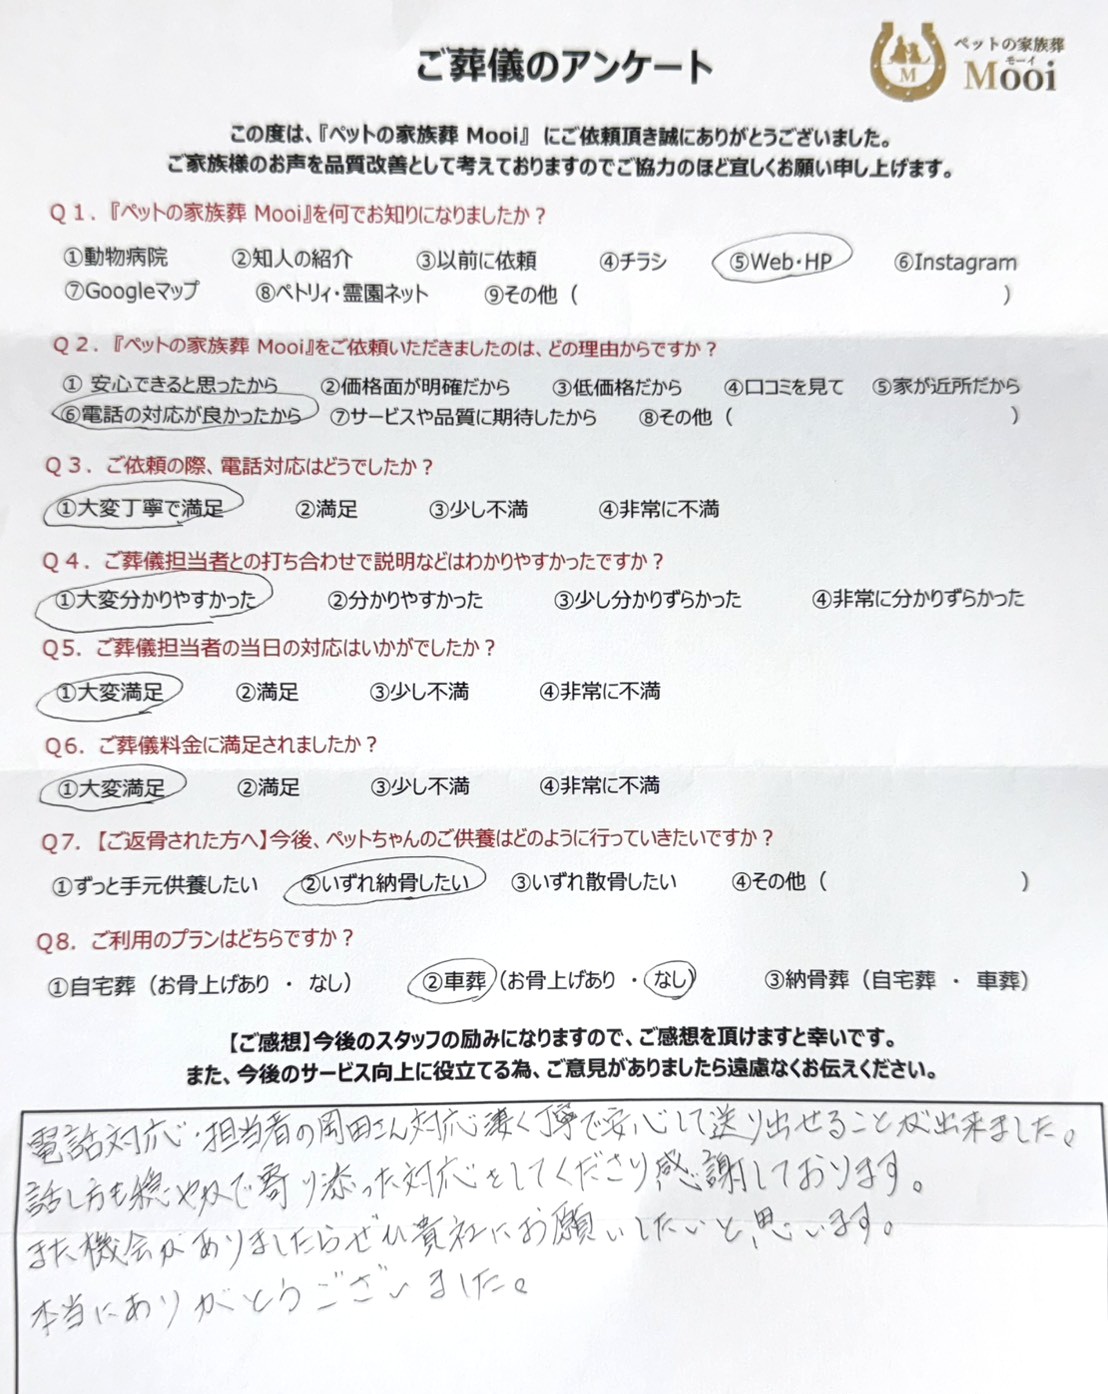 ご葬儀のアンケート
M
ペットの家族葬
モーイ
Mooi
この度は、『ペットの家族葬 Mooi』 にご依頼頂き誠にありがとうございました。
ご家族様のお声を品質改善として考えておりますのでご協力のほど宜しくお願い申し上げます。
Q1.『ペットの家族葬 Mooi』を何でお知りになりましたか？
①動物病院 ②知人の紹介 ③以前に依頼 ④チラシ ⑤Web・HP ⑥Instagram
⑦Googleマップ ⑧ペトリィ・霊園ネット ⑨その他（ ）
Q2.『ペットの家族葬 Mooi』をご依頼いただきましたのは、どの理由からですか？
① 安心できると思ったから ②価格面が明確だから ③低価格だから ④口コミを見て ⑤家が近所だから
⑥電話の対応が良かったから ⑦サービスや品質に期待したから ⑧その他（ ）
Q3. ご依頼の際、電話対応はどうでしたか？
①大変丁寧で満足 ②満足 ③少し不満 ④非常に不満
Q4. ご葬儀担当者との打ち合わせで説明などはわかりやすかったですか？
①大変分かりやすかった ②分かりやすかった ③少し分かりずらかった ④非常に分かりずらかった
Q5. ご葬儀担当者の当日の対応はいかがでしたか？
①大変満足 ②満足 ③少し不満 ④非常に不満
Q6. ご葬儀料金に満足されましたか？
①大変満足 ②満足 ③少し不満 ④非常に不満
Q7.【ご返骨された方へ】今後、ペットちゃんのご供養はどのように行っていきたいですか？
①ずっと手元供養したい ②いずれ納骨したい ③いずれ散骨したい ④その他（ ）
Q8. ご利用のプランはどちらですか？
①自宅葬（お骨上げあり ・ なし） ②車葬（お骨上げあり ・ なし） ③納骨葬（自宅葬 ・ 車葬）
【ご感想】今後のスタッフの励みになりますので、ご感想を頂けますと幸いです。
また、今後のサービス向上に役立てる為、ご意見がありましたら遠慮なくお伝えください。
電話対応・担当者の岡田さん対応凄く丁寧で安心して送り出せることが出来ました。
話し方も穏やかで寄り添った対応をしてくださり感謝しております。
また機会がありましたらぜひ貴社にお願いしたいと思います。
本当にありがとうございました。